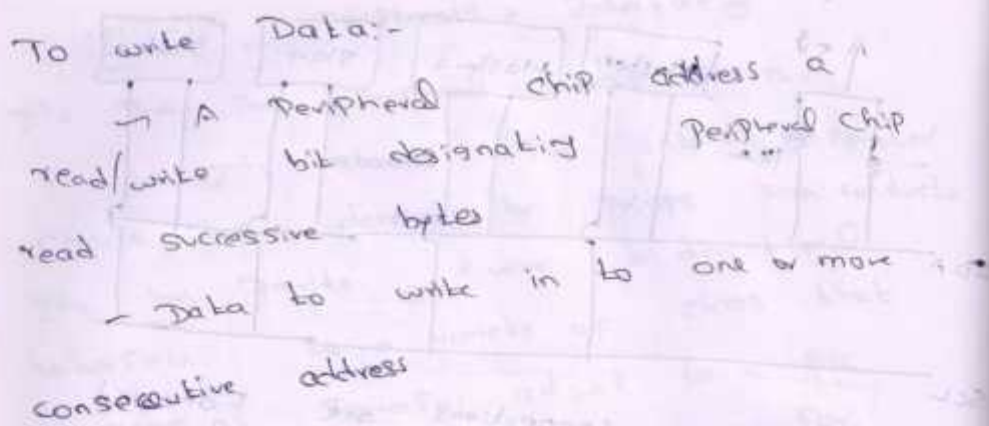 To write Data:-
→ A Peripheral chip address a
read/write bit designating Peripheral chip
read successive bytes
- Data to write in to one or more
consecutive address